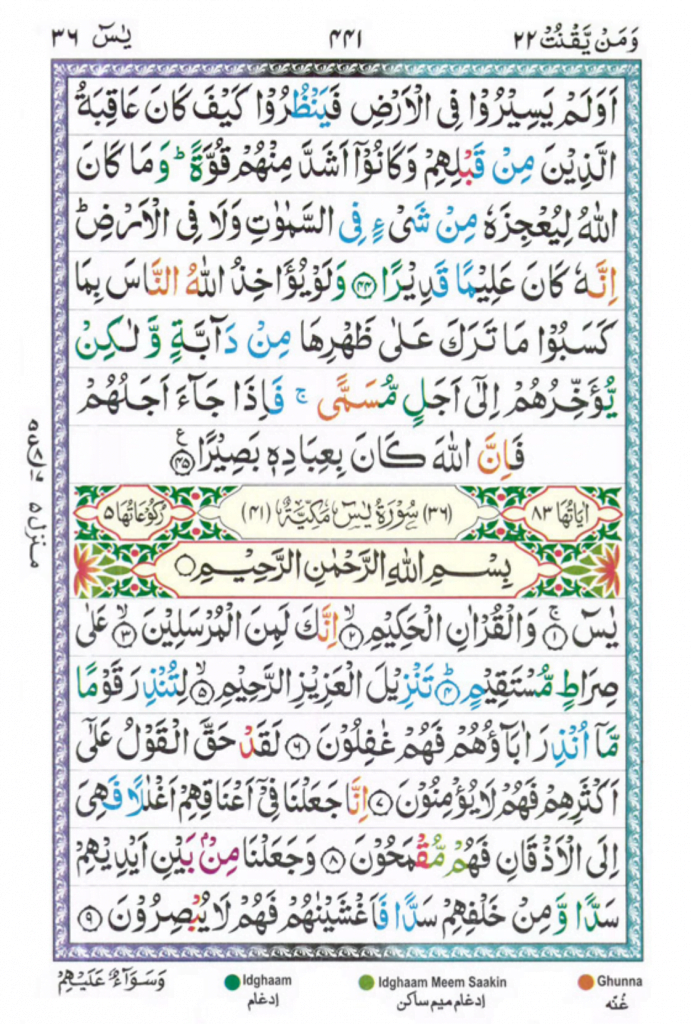 وَمَنْ يَّقْنُتْ ٢٢
٤٤١
يٰسٓ ٣٦
اَوَلَمْ يَسِيْرُوْا فِى الْاَرْضِ فَيَنْظُرُوْا كَيْفَ كَانَ عَاقِبَةُ
الَّذِيْنَ مِنْ قَبْلِهِمْ وَكَانُوْٓا اَشَدَّ مِنْهُمْ قُوَّةً ؕ وَمَا كَانَ
اللّٰهُ لِيُعْجِزَهٗ مِنْ شَىْءٍ فِى السَّمٰوٰتِ وَلَا فِى الْاَرْضِ ؕ
اِنَّهٗ كَانَ عَلِيْمًا قَدِيْرًا ﴿٤٤﴾ وَلَوْ يُؤَاخِذُ اللّٰهُ النَّاسَ بِمَا
كَسَبُوْا مَا تَرَكَ عَلٰى ظَهْرِهَا مِنْ دَآبَّةٍ وَّلٰكِنْ
يُّؤَخِّرُهُمْ اِلٰٓى اَجَلٍ مُّسَمًّى ۚ فَاِذَا جَآءَ اَجَلُهُمْ
فَاِنَّ اللّٰهَ كَانَ بِعِبَادِهٖ بَصِيْرًا ﴿٤٥﴾ ع
اٰيَاتُهَا ٨٣ (٣٦) سُوْرَةُ يٰسٓ مَكِّيَّةٌ (٤١) رُكُوْعَاتُهَا ٥
بِسْمِ اللّٰهِ الرَّحْمٰنِ الرَّحِيْمِ
يٰسٓ ﴿١﴾ وَالْقُرْاٰنِ الْحَكِيْمِ ﴿٢﴾ اِنَّكَ لَمِنَ الْمُرْسَلِيْنَ ﴿٣﴾ عَلٰى
صِرَاطٍ مُّسْتَقِيْمٍ ﴿٤﴾ؕ تَنْزِيْلَ الْعَزِيْزِ الرَّحِيْمِ ﴿٥﴾ لِتُنْذِرَ قَوْمًا
مَّآ اُنْذِرَ اٰبَآؤُهُمْ فَهُمْ غٰفِلُوْنَ ﴿٦﴾ لَقَدْ حَقَّ الْقَوْلُ عَلٰٓى
اَكْثَرِهِمْ فَهُمْ لَا يُؤْمِنُوْنَ ﴿٧﴾ اِنَّا جَعَلْنَا فِىْٓ اَعْنَاقِهِمْ اَغْلٰلًا فَهِىَ
اِلَى الْاَذْقَانِ فَهُمْ مُّقْمَحُوْنَ ﴿٨﴾ وَجَعَلْنَا مِنْۢ بَيْنِ اَيْدِيْهِمْ
سَدًّا وَّمِنْ خَلْفِهِمْ سَدًّا فَاَغْشَيْنٰهُمْ فَهُمْ لَا يُبْصِرُوْنَ ﴿٩﴾
منزل ٥
وَسَوَآءٌ عَلَيْهِمْ
Idghaam
إدغام
Idghaam Meem Saakin
إدغام ميم ساكن
Ghunna
غُنّه